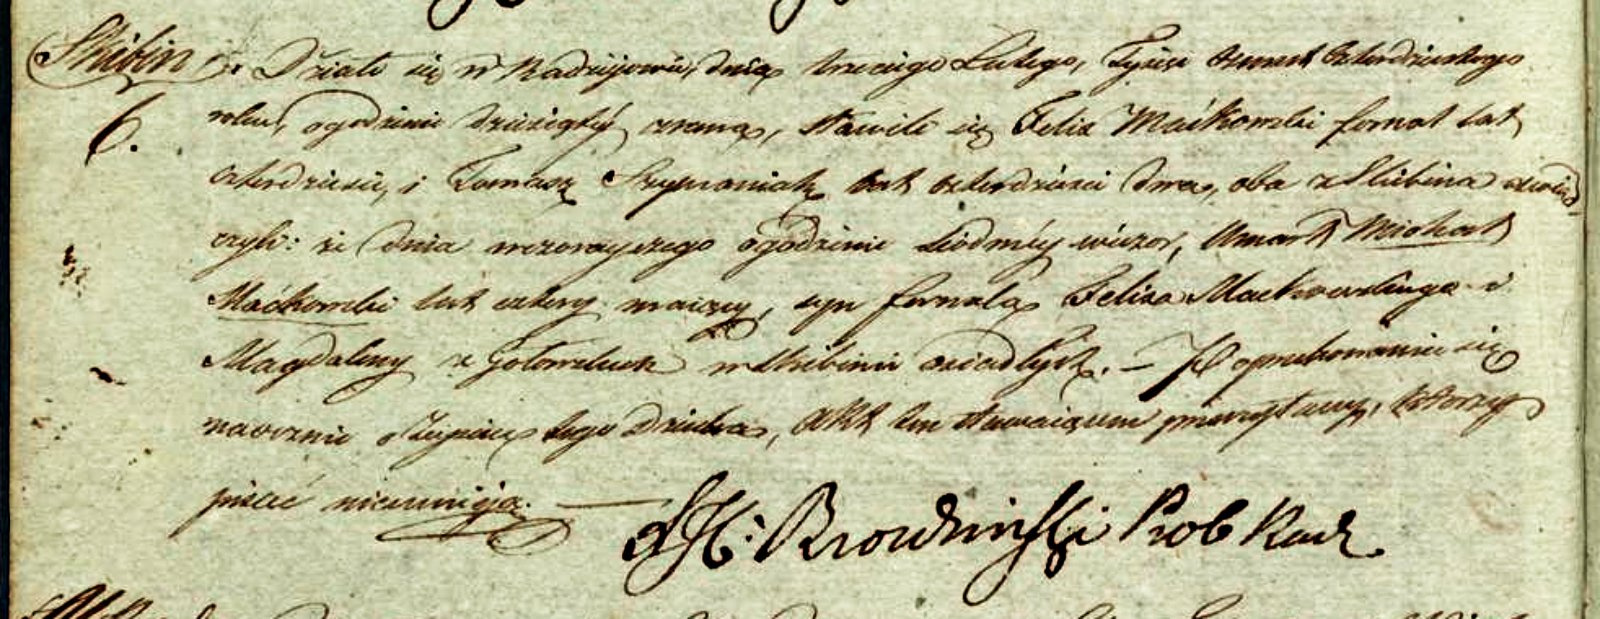 Skibin
6.
Działo się w Radziejowie, dnia trzeciego Lutego, Tysiąc ośmset czterdziestego
roku, o godzinie dziesiątej zrana, stawili się Felix Maćkowski fornal lat
czterdzieści, i Tomasz Szymaniak lat czterdzieści dwa, oba z Skibina oświad-
czyli: że dnia wczorayszego o godzinie siódméy wieczor, Umarł Michał
Maćkowski lat cztery maiący, syn fornala Felixa Mackowskiego i
Magdaleny z w Skibinie osiadłych. – Po przekonaniu się
naocznie o zejściu tego Dziecka, Akt ten stawaiącem przeczytany, którzy
pisać nieumieją. —
X H: Brodziński Prob Radz.